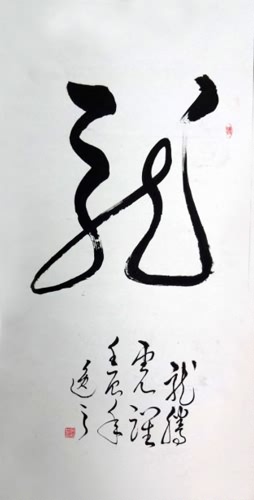 龍
龍騰
虎躍
壬辰年